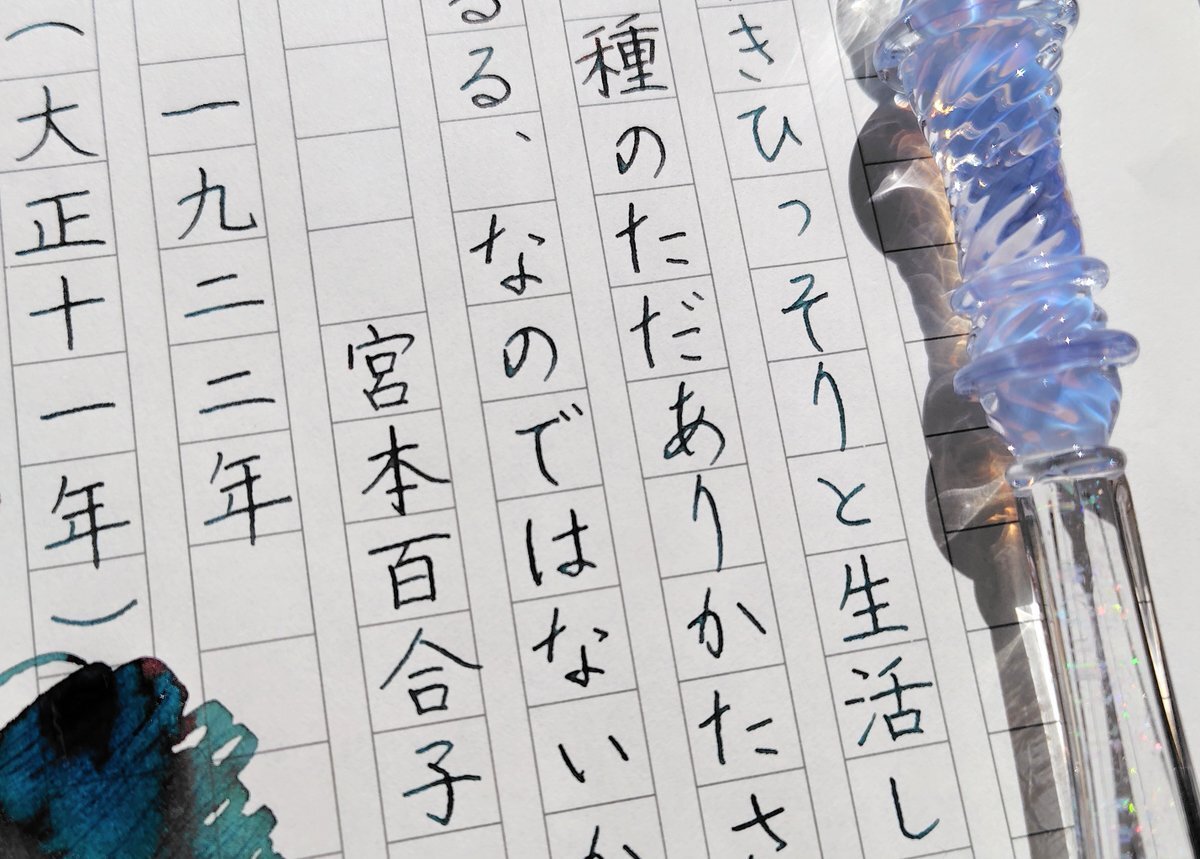 きひっそりと生活し
種のただありかたさ
る、なのではないか
宮本百合子
一九二二年
（大正十一年）